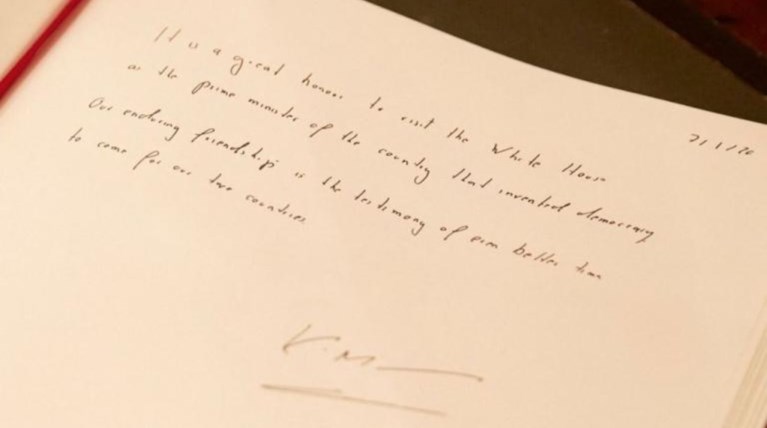 7/1/20
It is a great honour to visit the White House
as the prime minister of the country that invented democracy
Our enduring friendship is the testimony of even better time
to come for our two countries.
K. M